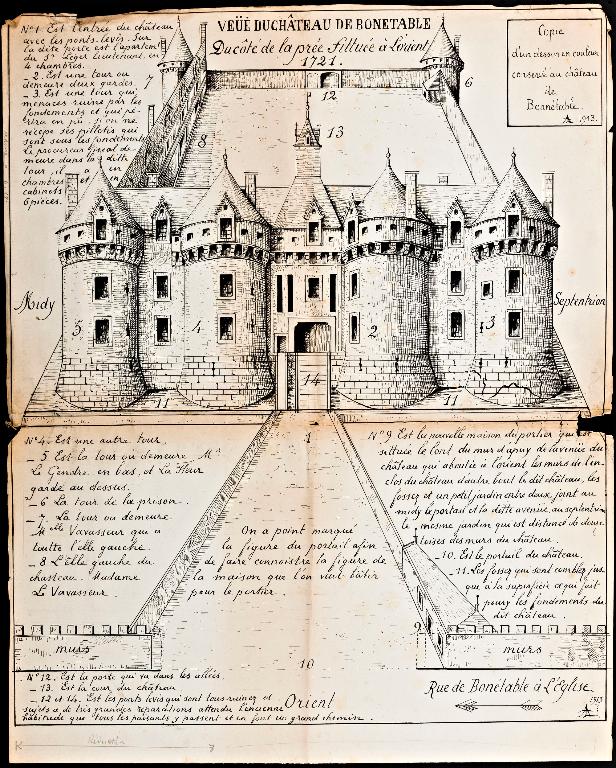 VEÜE DU CHÂTEAU DE BONETABLE
Du côté de la prée Sittuée à L'orient
1721.
Copie
d'un dessin en couleur
conservé au château
de
Bonnétable.
A 1913.
N° 1. Est l'entrée du château
avec les ponts-levis. Sur
la dite porte est l'apartem
du Sr Leger lieutenant, en
4 chambres.
_ 2. Est une tour ou
demeure deux gardes.
_ 3. Est une tour qui
menaces ruine par les
fondements et qui pe-
rira en peu, si on ne
récepe ses pillotis qui
sont sous les fondements
Le procureur fiscal de-
meure dans la ditte
tour, il a
chambres et un
cabinets en
6 pièces.
7
6
12
13
8
Midy
Septentrion
5
4
2
3
11
14
11
1
N° 4. Est une autre tour.
_ 5 Est la tour ou demeure Mr
Le Gendre en bas, et La Fleur
garde au dessus.
_ 6 La tour de la prison.
_ 7 La tour ou demeure
Melle Vavasseur qui a
toutte l'elle gauche.
_ 8 L'Elle gauche du
chasteau. Madame
Le Vavasseur.
On a point marqué
la figure du portait afin
de faire connoistre la figure de
la maison que l'on veut bâtir
pour le portier.
N° 9 Est la nouvelle maison du portier qui est
située le lont du mur d'apuy de l'avenüe du
château qui aboutie à l'orient les murs de l'en-
clos du château d'autre bout le dit château, les
fossez et un petit jardin entre deux, joint au
midy le portail et la ditte avenüe, au septentrion
le mesme jardin qui est distance de deux
toises des murs du château.
_ 10. Est le portail du château.
_ 11. Les fossez qui sont comblez jus-
que à la superficie ce qui fait
poury les fondements du
dit château.
9
murs
murs
10
N° 12. Est la porte qui va dans les allés.
_ 13. Est la cour du château
_ 12 et 14. Est les ponts levis qui sont tous ruinez et
sujets a de très grandes reparations attendu l'encienne
habitude que tous les païsants y passent et en font un grand chemin.
Orient
Rue de Bonétable à l'Eglise.
A 1913